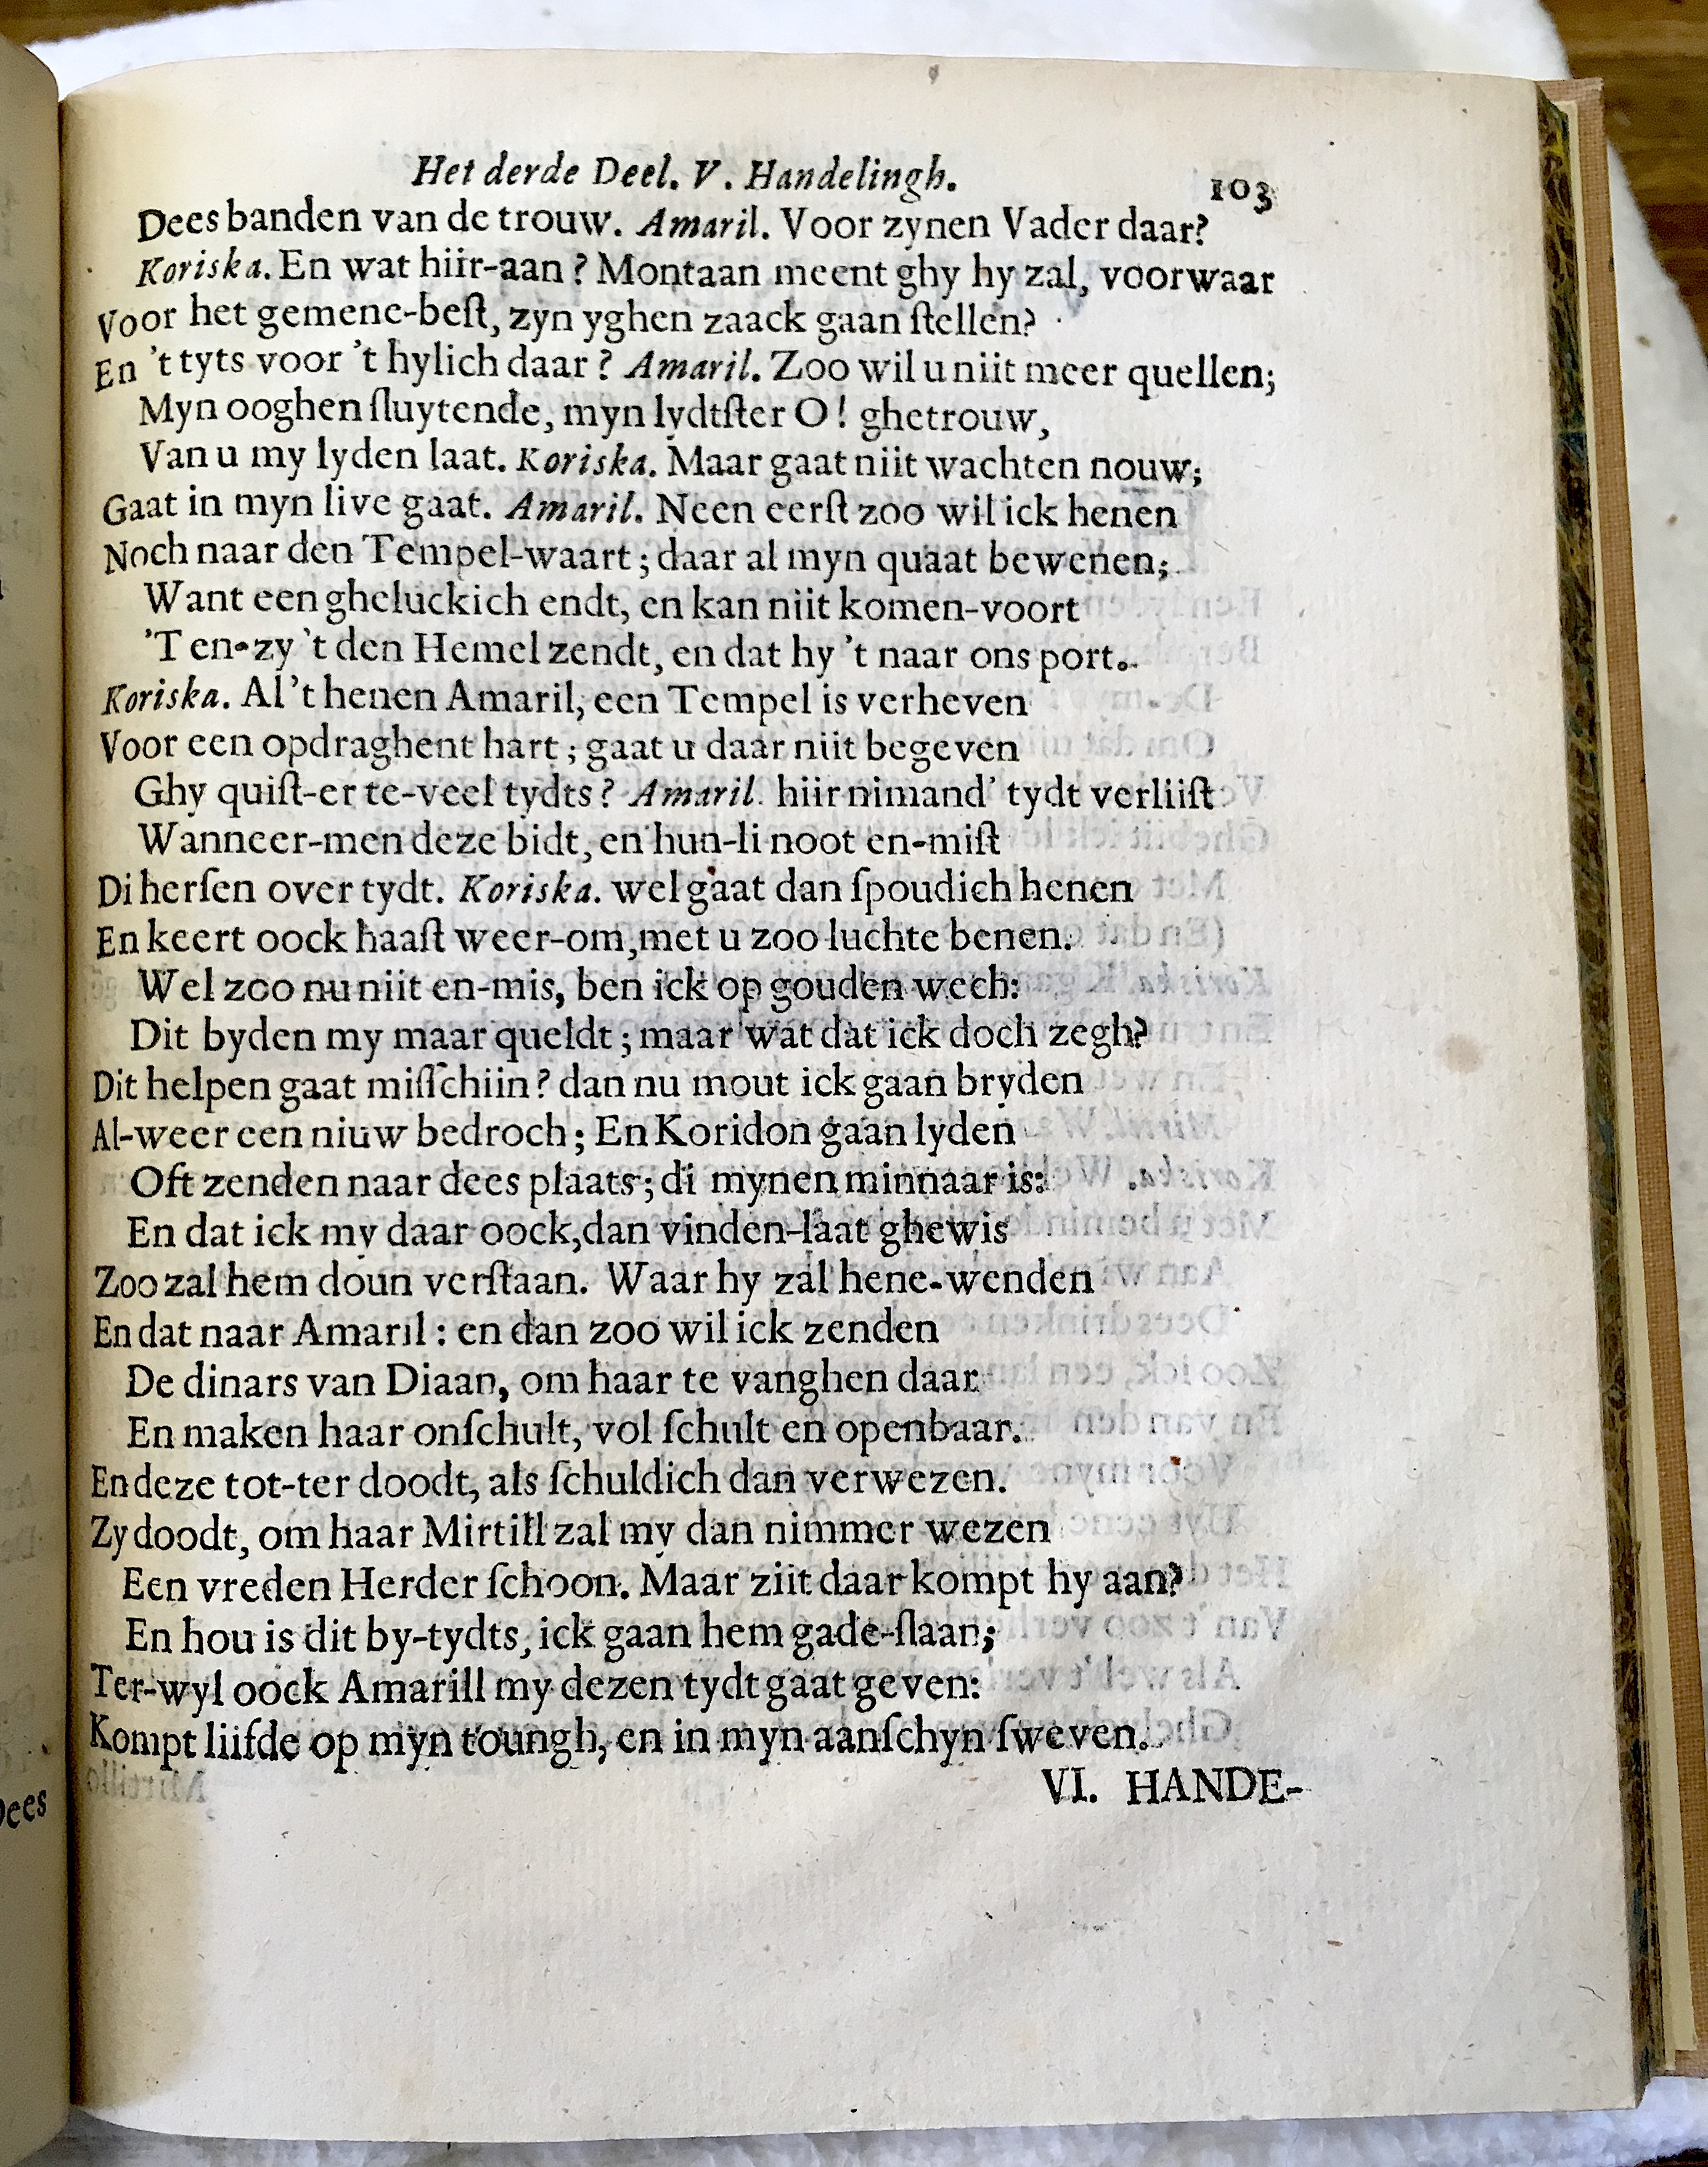 Het derde Deel. V. Handelingh. 103
Dees banden van de trouw. Amaril. Voor zynen Vader daar?
Koriska. En wat hiir-aan? Montaan meent ghy hy zal, voorwaar
Voor het gemene-beſt, zyn yghen zaack gaan ſtellen?
En 't tyts voor 't hylich daar? Amaril. Zoo wil u niit meer quellen;
Myn ooghen ſluytende, myn lydtſter O! ghetrouw,
Van u my lyden laat. Koriska. Maar gaat niit wachten nouw;
Gaat in myn live gaat. Amaril. Neen eerſt zoo wil ick henen
Noch naar den Tempel-waart; daar al myn quaat bewenen;
Want een gheluckich endt, en kan niit komen-voort
'T en-zy 't den Hemel zendt, en dat hy 't naar ons port.
Koriska. Al 't henen Amaril, een Tempel is verheven
Voor een opdraghent hart; gaat u daar niit begeven
Ghy quiſt-er te-veel tydts? Amaril. hiir nimand' tydt verliiſt
Wanneer-men deze bidt, en hun-li noot en-miſt
Di herſen over tydt. Koriska. wel gaat dan ſpoudich henen
En keert oock haaſt weer-om, met u zoo luchte benen.
Wel zoo nu niit en-mis, ben ick op gouden wech:
Dit byden my maar queldt; maar wat dat ick doch zegh?
Dit helpen gaat miſſchiin? dan nu mout ick gaan bryden
Al-weer een niuw bedroch; En Koridon gaan lyden
Oft zenden naar dees plaats; di mynen minnaar is:
En dat ick my daar oock, dan vinden-laat ghewis
Zoo zal hem doun verſtaan. Waar hy zal hene-wenden
En dat naar Amaril: en dan zoo wil ick zenden
De dinars van Diaan, om haar te vanghen daar
En maken haar onſchult, vol ſchult en openbaar.
En deze tot-ter doodt, als ſchuldich dan verwezen.
Zy doodt, om haar Mirtill zal my dan nimmer wezen
Een vreden Herder ſchoon. Maar ziit daar kompt hy aan?
En hou is dit by-tydts, ick gaan hem gade-ſlaan;
Ter-wyl oock Amarill my dezen tydt gaat geven:
Kompt liifde op myn toungh, en in myn aanſchyn ſweven.
VI. HANDE-
Dees